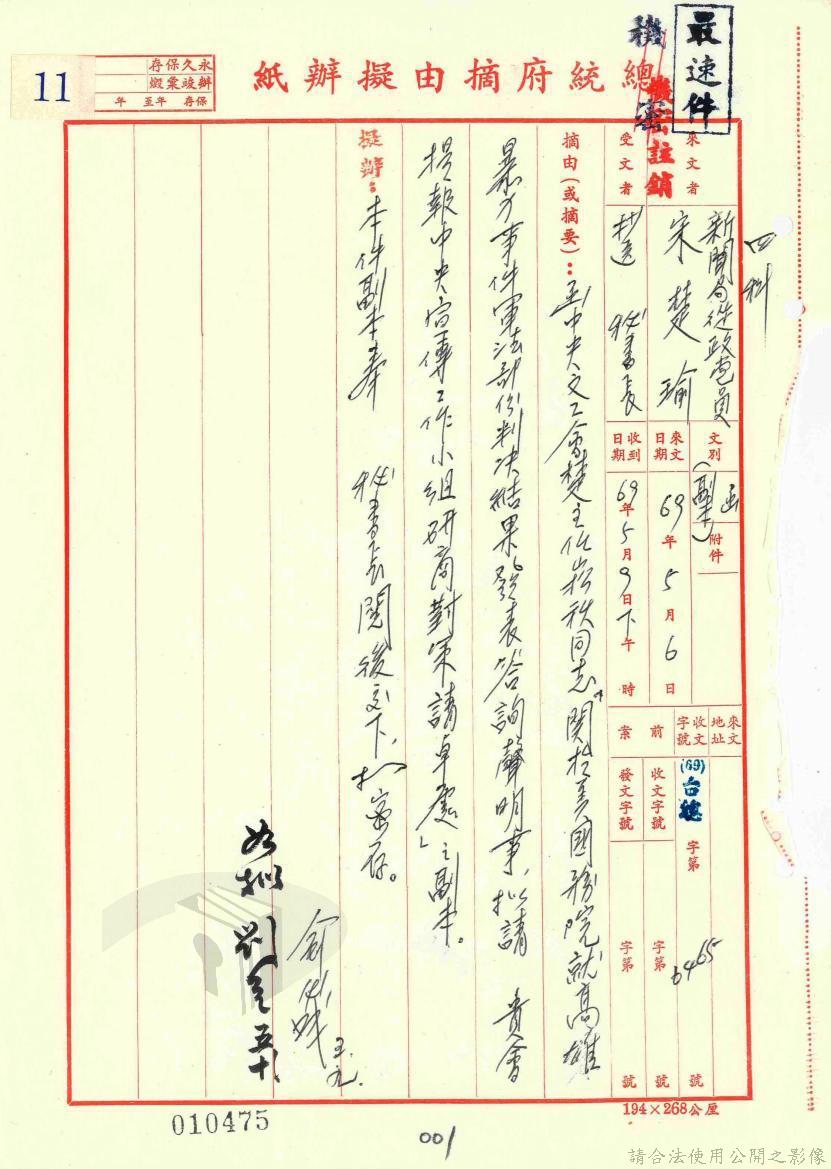 最速件
機密
機密註銷
總統府摘由擬辦紙
永久保存
辦竣彙繳
保存 年至 年
11
四科
來文者
新聞局從政黨員
宋楚瑜
受文者
秘書長
文別
函(副本)
附件
來文日期
69年5月6日
收到日期
69年5月9日下午 時
來文地址
收文字號
(69)台總 字第 6465 號
前案
收文字號 字第 號
發文字號 字第 號
摘由(或摘要):函中央文工會楚主任崧秋同志「關於美國務院就高雄
暴力事件軍法部份判決結果發表答詢聲明事,擬請 貴會
提報中央宣傳工作小組研商對策請卓處」之副本。
擬辦:本件副本奉 秘書長閱後交下,擬密存。
五.九.
如擬
五十
010475
001
194×268公厘
請合法使用公開之影像